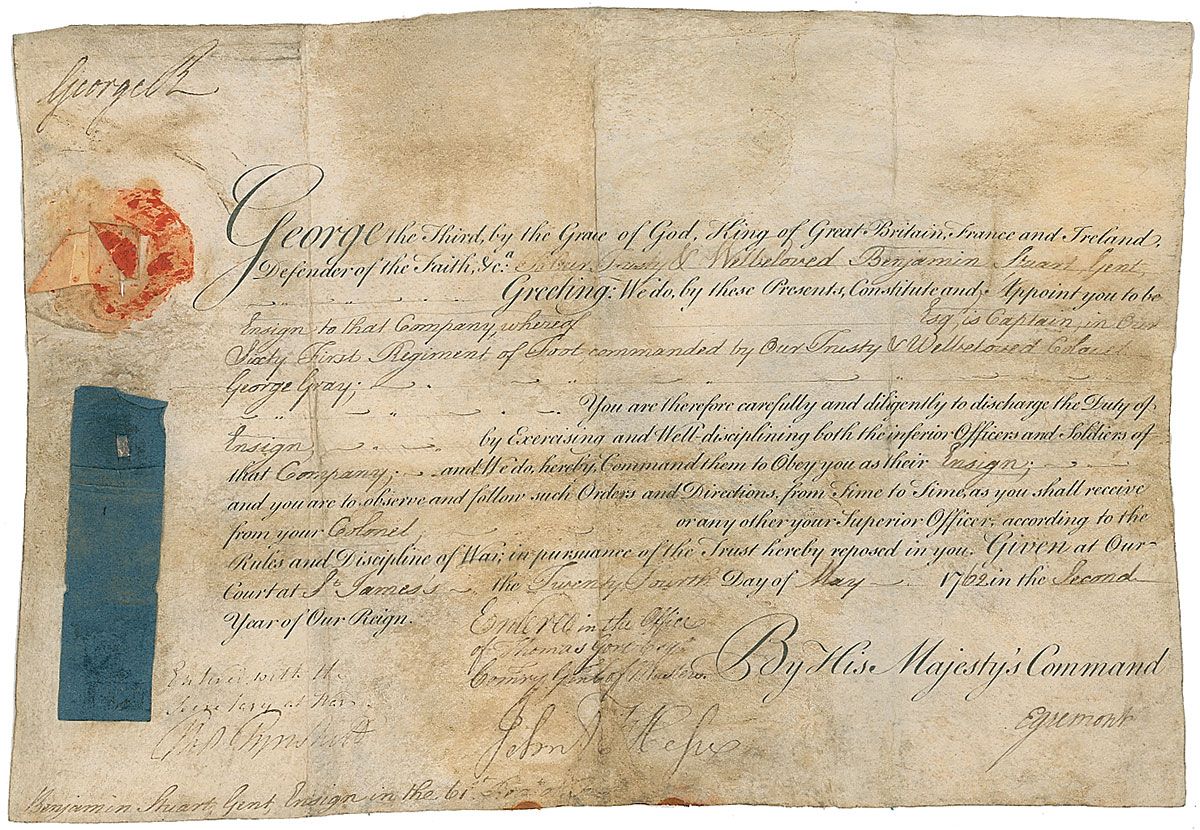 George R
George the Third, by the Grace of God, King of Great Britain, France and Ireland,
Defender of the Faith, &c.a To Our Trusty & Welbeloved Benjamin Stuart Gent,
Greeting: We do, by these Presents, Constitute and Appoint you to be
Ensign to that Company, whereof Esq, is Captain, in Our
Sixty First Regiment of Foot commanded by Our Trusty & Welbeloved Colonel
George Gray;
You are therefore carefully and diligently to discharge the Duty of
Ensign by Exercising and Well-disciplining both the inferior Officers and Soldiers of
that Company; and We do, hereby, Command them to Obey you as their Ensign;
and you are to observe and follow such Orders and Directions, from Time to Time, as you shall receive
from your Colonel or any other your Superior Officer, according to the
Rules and Discipline of War, in pursuance of the Trust hereby reposed in you. Given at Our
Court at St. James's the Twenty Fourth Day of May 1762 in the Second
Year of Our Reign.
By His Majesty's Command
Egremont
Entered in the Office
of Thomas Gore Esqr.
Comry. Genl. of Musters.
Entered with the
Secretary at War
Benjamin Stuart, Gent, Ensign in the 61st Foot